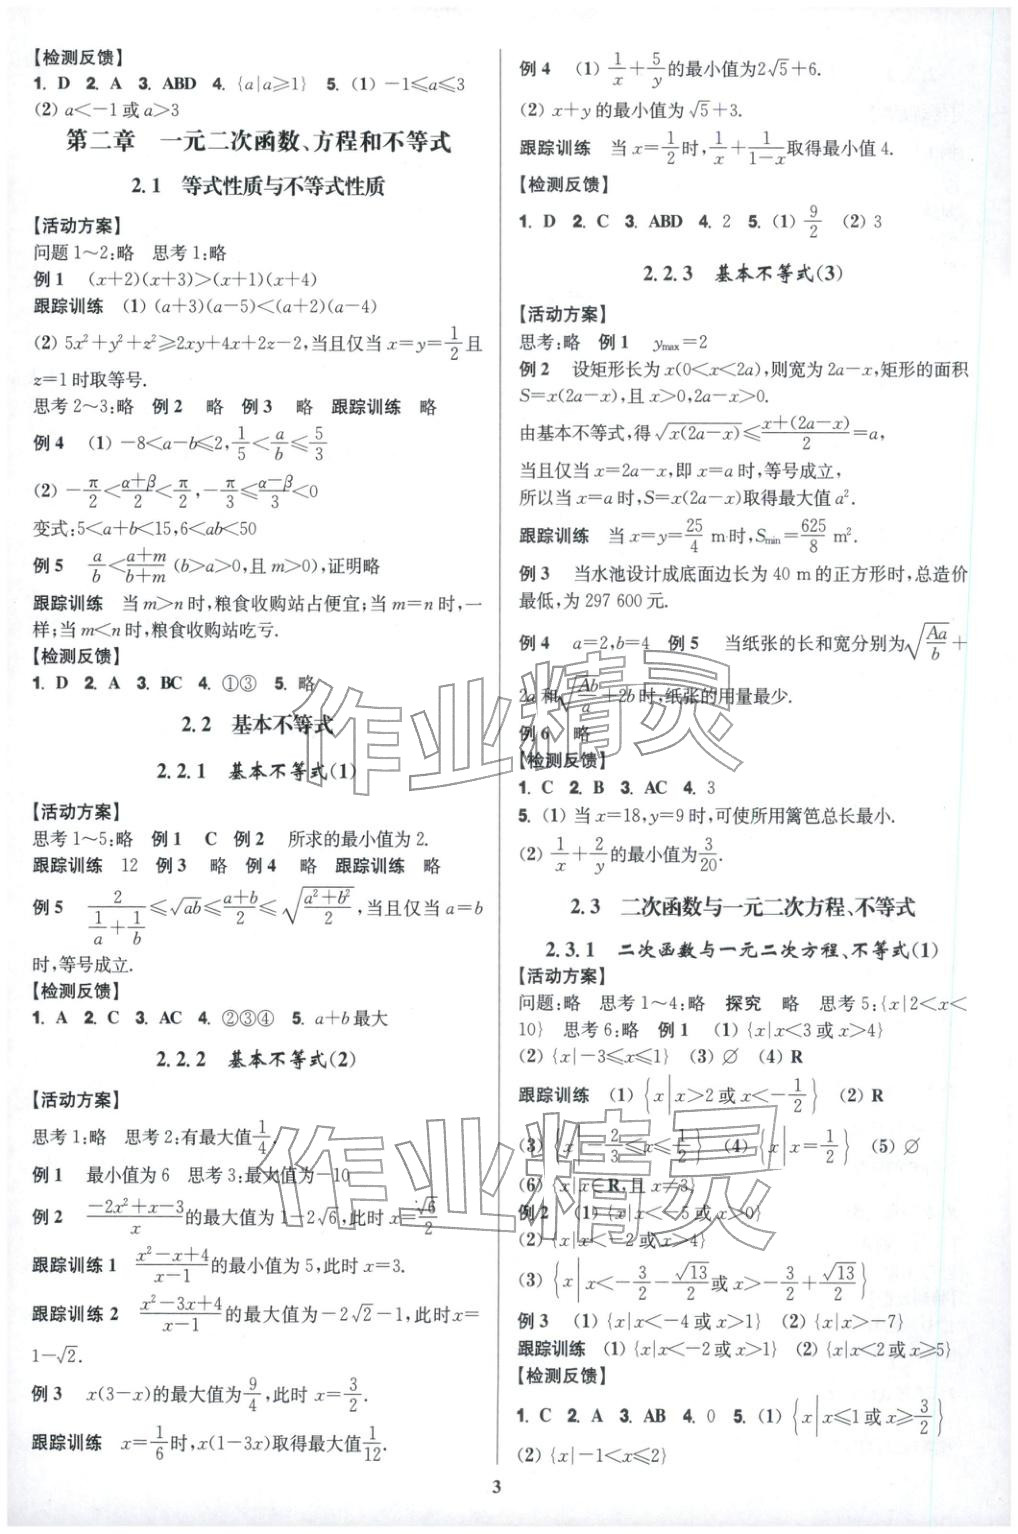 【检测反馈】
1. D 2. A 3. ABD 4. {a|a≥1} 5. (1) －1≤a≤3
(2) a<－1或a>3
第二章 一元二次函数、方程和不等式
2.1 等式性质与不等式性质
【活动方案】
问题1～2:略 思考1:略
例1 (x＋2)(x＋3)>(x＋1)(x＋4)
跟踪训练 (1) (a＋3)(a－5)<(a＋2)(a－4)
(2) 5x²＋y²＋z²≥2xy＋4x＋2z－2,当且仅当x＝y＝1/2且
z＝1时取等号.
思考2～3:略 例2 略 例3 略 跟踪训练 略
例4 (1) －8<a－b≤2,1/5<a/b≤5/3
(2) －π/2<(α＋β)/2<π/2,－π/3≤(α－β)/3<0
变式:5<a＋b<15,6<ab<50
例5 a/b<(a＋m)/(b＋m) (b>a>0,且m>0),证明略
跟踪训练 当m>n时,粮食收购站占便宜;当m＝n时,一
样;当m<n时,粮食收购站吃亏.
【检测反馈】
1. D 2. A 3. BC 4. ①③ 5. 略
2.2 基本不等式
2.2.1 基本不等式(1)
【活动方案】
思考1～5:略 例1 C 例2 所求的最小值为2.
跟踪训练 12 例3 略 例4 略 跟踪训练 略
例5 2/(1/a＋1/b)≤√ab≤(a＋b)/2≤√((a²＋b²)/2),当且仅当a＝b
时,等号成立.
【检测反馈】
1. A 2. C 3. AC 4. ②③④ 5. a＋b最大
2.2.2 基本不等式(2)
【活动方案】
思考1:略 思考2:有最大值1/4.
例1 最小值为6 思考3:最大值为－10
例2 (－2x²＋x－3)/x的最大值为1－2√6,此时x＝√6/2
跟踪训练1 (x²－x＋4)/(x－1)的最小值为5,此时x＝3.
跟踪训练2 (x²－3x＋4)/(x－1)的最大值为－2√2－1,此时x＝
1－√2.
例3 x(3－x)的最大值为9/4,此时x＝3/2.
跟踪训练 x＝1/6时,x(1－3x)取得最大值1/12.
例4 (1) 1/x＋5/y的最小值为2√5＋6.
(2) x＋y的最小值为√5＋3.
跟踪训练 当x＝1/2时,1/x＋1/(1－x)取得最小值4.
【检测反馈】
1. D 2. C 3. ABD 4. 2 5. (1) 9/2 (2) 3
2.2.3 基本不等式(3)
【活动方案】
思考:略 例1 ymax＝2
例2 设矩形长为x(0<x<2a),则宽为2a－x,矩形的面积
S＝x(2a－x),且x>0,2a－x>0.
由基本不等式,得√(x(2a－x))≤(x＋(2a－x))/2＝a,
当且仅当x＝2a－x,即x＝a时,等号成立,
所以当x＝a时,S＝x(2a－x)取得最大值a².
跟踪训练 当x＝y＝25/4 m时,Smin＝625/8 m².
例3 当水池设计成底面边长为40 m的正方形时,总造价
最低,为297 600元.
例4 a＝2,b＝4 例5 当纸张的长和宽分别为√(Aa/b)＋
2a和√(Ab/a)＋2b时,纸张的用量最少.
例6 略
【检测反馈】
1. C 2. B 3. AC 4. 3
5. (1) 当x＝18,y＝9时,可使所用篱笆总长最小.
(2) 1/x＋2/y的最小值为3/20.
2.3 二次函数与一元二次方程、不等式
2.3.1 二次函数与一元二次方程、不等式(1)
【活动方案】
问题:略 思考1～4:略 探究 略 思考5:{x|2<x<
10} 思考6:略 例1 (1) {x|x<3或x>4}
(2) {x|－3≤x≤1} (3) ∅ (4) R
跟踪训练 (1) {x|x>2或x<－1/2} (2) R
(3) {x|－2/3≤x≤1/2} (4) {x|x＝1/2} (5) ∅
(6) {x|x∈R,且x≠3}
例2 (1) {x|x<－5或x>0}
(2) {x|x<－2或x>4}
(3) {x|x<－3/2－√13/2或x>－3/2＋√13/2}
例3 (1) {x|x<－4或x>1} (2) {x|x>－7}
跟踪训练 (1) {x|x<－2或x>1} (2) {x|x<2或x≥5}
【检测反馈】
1. C 2. A 3. AB 4. 0 5. (1) {x|x≤1或x≥3/2}
(2) {x|－1<x≤2}
3
作业精灵
作业精灵